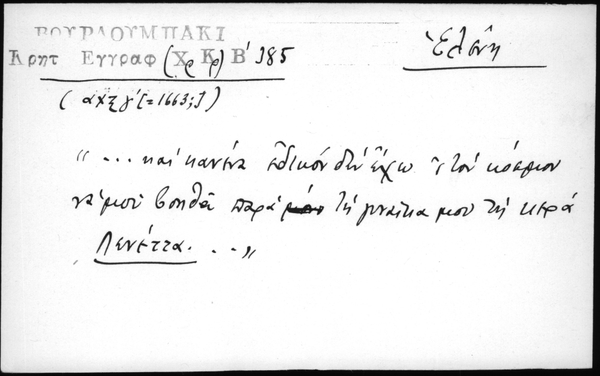 ΒΟΥΡΔΟΥΜΠΑΚΙ
Κρητ Εγγραφ (χ ρ) Χ Κ Β' 185
Ἑλένη
(αχξγ' [=1663;])
"... καί κανένα ἐδικόν δέν ἔχω 'ς τόν κόσμον
νά μοῦ βοηθᾶ παρά τή γυναῖκα μου τή κερά
Λενέττα. ..."